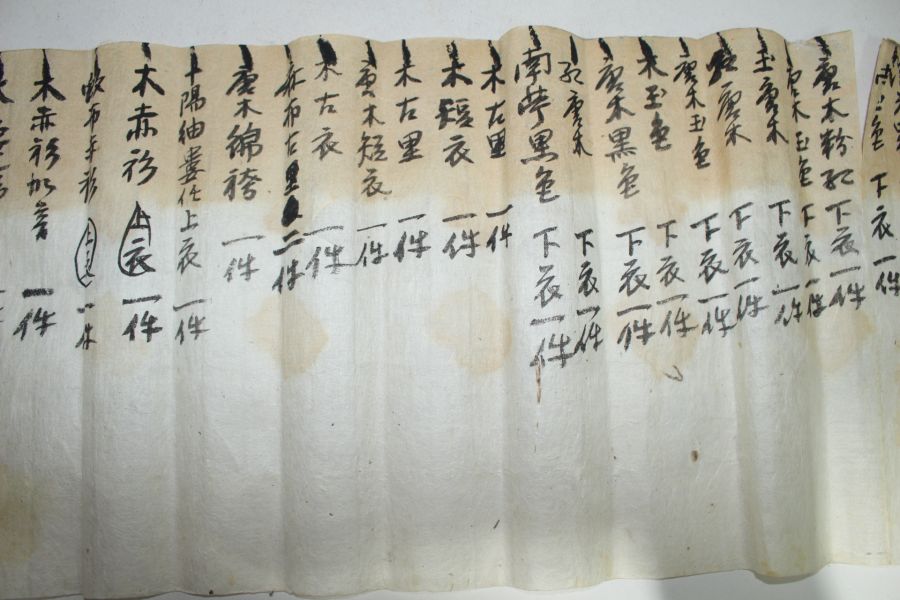 色下衣一件
唐木粉紅下衣一件
唐木玉色下衣一件
玉唐木下衣一件
紅唐木下衣一件
唐木玉色下衣一件
木玉色下衣一件
唐木黑色下衣一件
紅唐木下衣一件
南苧黑色下衣一件
木古里一件
木短衣一件
木古里一件
唐木短衣一件
木古衣一件
赤布古里二件
唐木綿袴一件
陽紬 上衣一件
木赤衫上衣一件
布赤衫 一件
木赤衫 一件